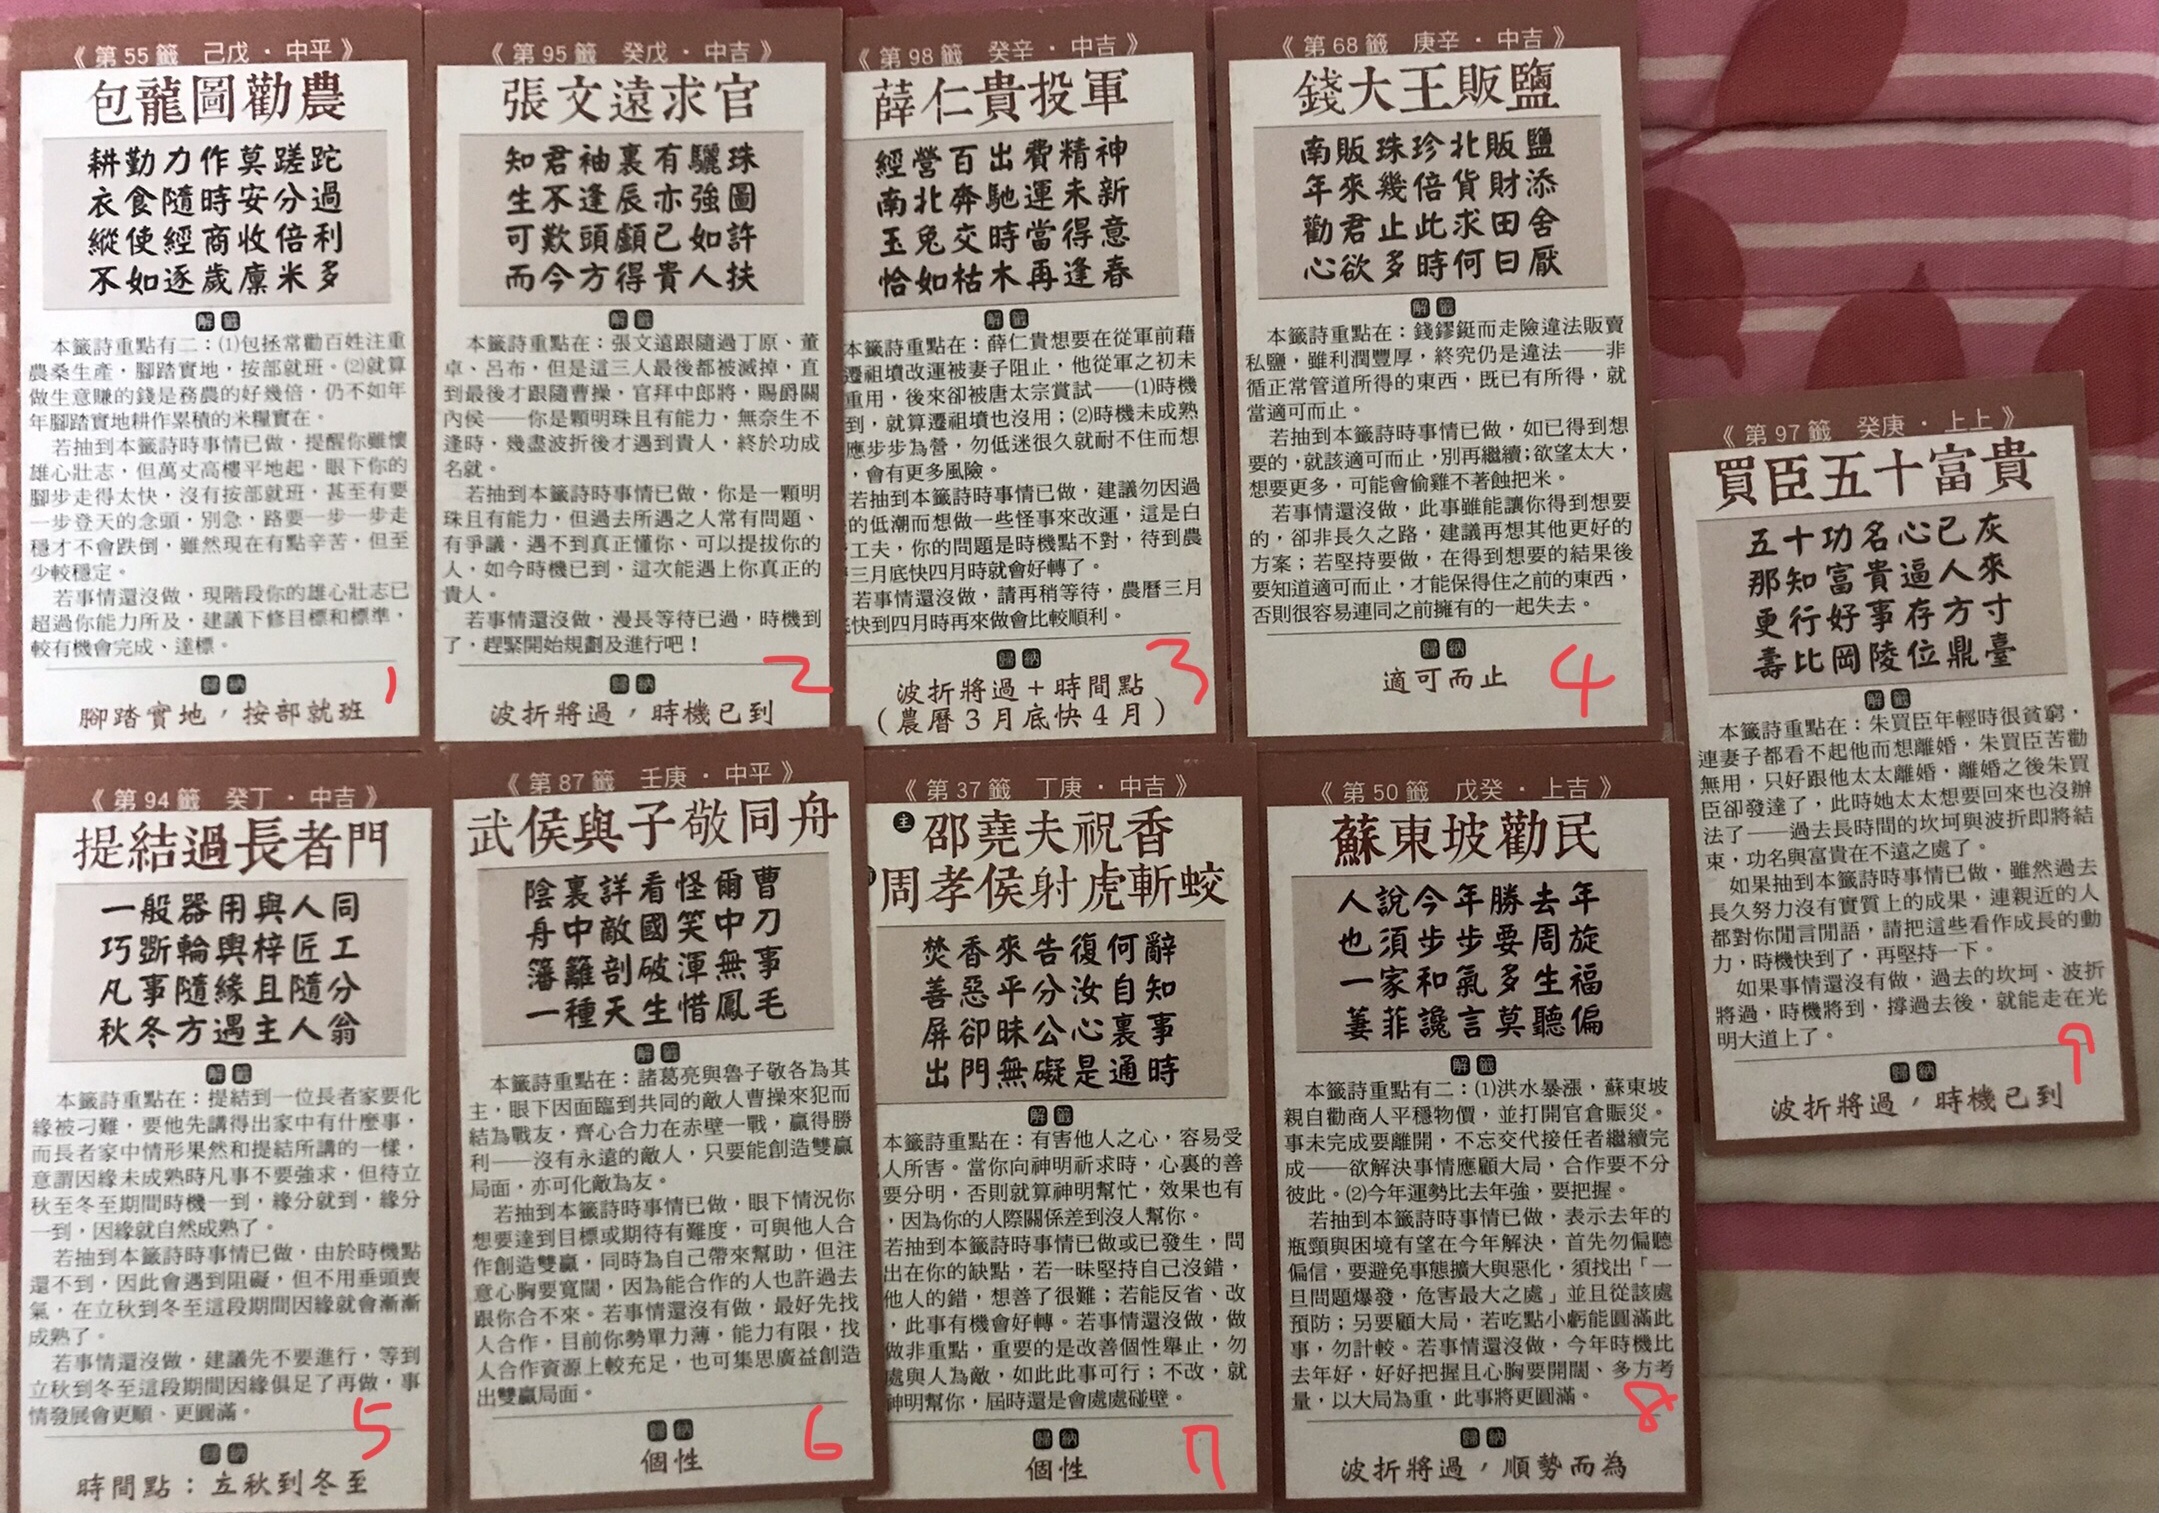 《第55籤 己戊・中平》
包龍圖勸農
耕勤力作莫蹉跎
衣食隨時安分過
縱使經商收倍利
不如逐歲廩米多
解籤
本籤詩重點有二：⑴包拯常勸百姓注重
農桑生產，腳踏實地，按部就班。⑵就算
做生意賺的錢是務農的好幾倍，仍不如年
年腳踏實地耕作累積的米糧實在。
若抽到本籤詩時事情已做，提醒你雖懷
雄心壯志，但萬丈高樓平地起，眼下你的
腳步走得太快，沒有按部就班，甚至有要
一步登天的念頭，別急，路要一步一步走
穩才不會跌倒，雖然現在有點辛苦，但至
少較穩定。
若事情還沒做，現階段你的雄心壯志已
超過你能力所及，建議下修目標和標準，
較有機會完成、達標。
歸納
腳踏實地，按部就班
1
《第95籤 癸戊・中吉》
張文遠求官
知君袖裏有驪珠
生不逢辰亦強圖
可歎頭顱已如許
而今方得貴人扶
解籤
本籤詩重點在：張文遠跟隨過丁原、董
卓、呂布，但是這三人最後都被滅掉，直
到最後才跟隨曹操，官拜中郎將，賜爵關
內侯——你是顆明珠且有能力，無奈生不
逢時，幾盡波折後才遇到貴人，終於功成
名就。
若抽到本籤詩時事情已做，你是一顆明
珠且有能力，但過去所遇之人常有問題、
有爭議，遇不到真正懂你、可以提拔你的
人，如今時機已到，這次能遇上你真正的
貴人。
若事情還沒做，漫長等待已過，時機到
了，趕緊開始規劃及進行吧！
歸納
波折將過，時機已到
2
《第98籤 癸辛・中吉》
薛仁貴投軍
經營百出費精神
南北奔馳運未新
玉兔交時當得意
恰如枯木再逢春
解籤
本籤詩重點在：薛仁貴想要在從軍前藉
遷祖墳改運被妻子阻止，他從軍之初未
重用，後來卻被唐太宗賞試——⑴時機
到，就算遷祖墳也沒用；⑵時機未成熟
應步步為營，勿低迷很久就耐不住而想
，會有更多風險。
若抽到本籤詩時事情已做，建議勿因過
的低潮而想做一些怪事來改運，這是白
工夫，你的問題是時機點不對，待到農
三月底快四月時就會好轉了。
若事情還沒做，請再稍等待，農曆三月
快到四月時再來做會比較順利。
歸納
波折將過＋時間點
（農曆3月底快4月）
3
《第68籤 庚辛・中吉》
錢大王販鹽
南販珠珍北販鹽
年來幾倍貨財添
勸君止此求田舍
心欲多時何日厭
解籤
本籤詩重點在：錢鏐鋌而走險違法販賣
私鹽，雖利潤豐厚，終究仍是違法——非
循正常管道所得的東西，既已有所得，就
當適可而止。
若抽到本籤詩時事情已做，如已得到想
要的，就該適可而止，別再繼續；欲望太大，
想要更多，可能會偷雞不著蝕把米。
若事情還沒做，此事雖能讓你得到想要
的，卻非長久之路，建議再想其他更好的
方案；若堅持要做，在得到想要的結果後
要知道適可而止，才能保得住之前的東西，
否則很容易連同之前擁有的一起失去。
歸納
適可而止
4
《第94籤 癸丁・中吉》
提結過長者門
一般器用與人同
巧斲輪輿梓匠工
凡事隨緣且隨分
秋冬方遇主人翁
解籤
本籤詩重點在：提結到一位長者家要化
緣被刁難，要他先講得出家中有什麼事，
而長者家中情形果然和提結所講的一樣，
意謂因緣未成熟時凡事不要強求，但待立
秋至冬至期間時機一到，緣分就到，緣分
一到，因緣就自然成熟了。
若抽到本籤詩時事情已做，由於時機點
還不到，因此會遇到阻礙，但不用垂頭喪
氣，在立秋到冬至這段期間因緣就會漸漸
成熟了。
若事情還沒做，建議先不要進行，等到
立秋到冬至這段期間因緣俱足了再做，事
情發展會更順、更圓滿。
歸納
時間點：立秋到冬至
5
《第87籤 壬庚・中平》
武侯與子敬同舟
陰裏詳看怪爾曹
舟中敵國笑中刀
藩籬剖破渾無事
一種天生惜鳳毛
解籤
本籤詩重點在：諸葛亮與魯子敬各為其
主，眼下因面臨到共同的敵人曹操來犯而
結為戰友，齊心合力在赤壁一戰，贏得勝
利——沒有永遠的敵人，只要能創造雙贏
局面，亦可化敵為友。
若抽到本籤詩時事情已做，眼下情況你
想要達到目標或期待有難度，可與他人合
作創造雙贏，同時為自己帶來幫助，但注
意心胸要寬闊，因為能合作的人也許過去
跟你合不來。若事情還沒有做，最好先找
人合作，目前你勢單力薄，能力有限，找
人合作資源上較充足，也可集思廣益創造
出雙贏局面。
歸納
個性
6
《第37籤 丁庚・中吉》
主 邵堯夫祝香
周孝侯射虎斬蛟
焚香來告復何辭
善惡平分汝自知
屏卻昧公心裏事
出門無礙是通時
解籤
本籤詩重點在：有害他人之心，容易受
人所害。當你向神明祈求時，心裏的善
要分明，否則就算神明幫忙，效果也有
，因為你的人際關係差到沒人幫你。
若抽到本籤詩時事情已做或已發生，問
出在你的缺點，若一昧堅持自己沒錯，
他人的錯，想善了很難；若能反省、改
，此事有機會好轉。若事情還沒做，做
做非重點，重要的是改善個性舉止，勿
處與人為敵，如此此事可行；不改，就
神明幫你，屆時還是會處處碰壁。
歸納
個性
7
《第50籤 戊癸・上吉》
蘇東坡勸民
人說今年勝去年
也須步步要周旋
一家和氣多生福
萋菲讒言莫聽偏
解籤
本籤詩重點有二：⑴洪水暴漲，蘇東坡
親自勸商人平穩物價，並打開官倉賑災。
事未完成要離開，不忘交代接任者繼續完
成——欲解決事情應顧大局，合作要不分
彼此。⑵今年運勢比去年強，要把握。
若抽到本籤詩時事情已做，表示去年的
瓶頸與困境有望在今年解決，首先勿偏聽
偏信，要避免事態擴大與惡化，須找出「一
旦問題爆發，危害最大之處」並且從該處
預防；另要顧大局，若吃點小虧能圓滿此
事，勿計較。若事情還沒做，今年時機比
去年好，好好把握且心胸要開闊、多方考
量，以大局為重，此事將更圓滿。
歸納
波折將過，順勢而為
8
《第97籤 癸庚・上上》
買臣五十富貴
五十功名心已灰
那知富貴逼人來
更行好事存方寸
壽比岡陵位鼎臺
解籤
本籤詩重點在：朱買臣年輕時很貧窮，
連妻子都看不起他而想離婚，朱買臣苦勸
無用，只好跟他太太離婚，離婚之後朱買
臣卻發達了，此時她太太想要回來也沒辦
法了——過去長時間的坎坷與波折即將結
束，功名與富貴在不遠之處了。
如果抽到本籤詩時事情已做，雖然過去
長久努力沒有實質上的成果，連親近的人
都對你閒言閒語，請把這些看作成長的動
力，時機快到了，再堅持一下。
如果事情還沒有做，過去的坎坷、波折
將過，時機將到，撐過去後，就能走在光
明大道上了。
歸納
波折將過，時機已到
9